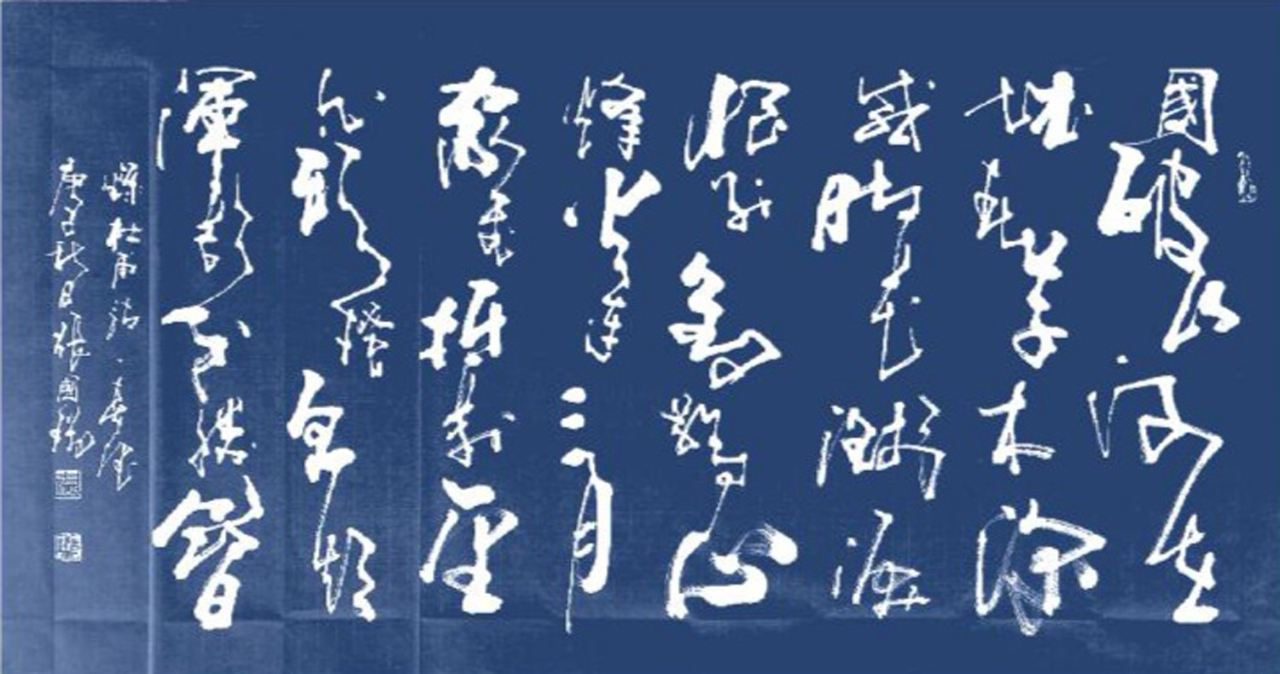 國破山河在
城春草木深
感時花濺淚
恨別鳥驚心
烽火連三月
家書抵萬金
白頭搔更短
渾欲不勝簪
錄杜甫詩·春望
秋日張國